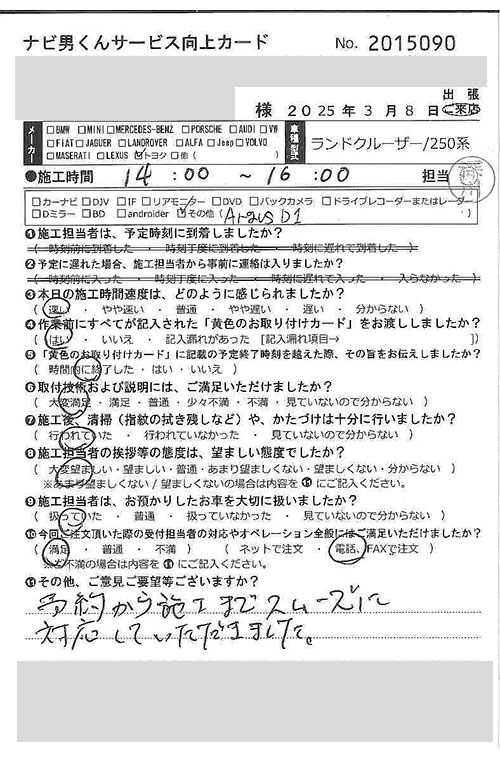 ナビ男くんサービス向上カード No. 2015090
様 2025年3月8日 ご来店
出張
メーカー □BMW □MINI □MERCEDES-BENZ □PORSCHE □AUDI □VW
□FIAT □JAGUER □LANDROVER □ALFA □Jeep □VOLVO
□MASERATI □LEXUS ☑トヨタ □他( )
車種型式 ランドクルーザー/250系
●施工時間 14:00 ~ 16:00 担当
□カーナビ □DJV □IF □リアモニター □DVD □バックカメラ □ドライブレコーダーまたはレーダー
□Dミラー □BD □androider ☑その他( Argus D1 )
❶施工担当者は、予定時刻に到着しましたか?
( 時刻前に到着した ・ 時刻丁度に到着した ・ 時刻に遅れて到着した )
❷予定に遅れた場合、施工担当者から事前に連絡は入りましたか?
( 時刻前に入った ・ 時刻丁度に入った ・ 時刻に遅れて入った ・ 入らなかった )
❸本日の施工時間速度は、どのように感じられましたか?
( 速い ・ やや速い ・ 普通 ・ やや遅い ・ 遅い ・ 分からない )
❹作業前にすべてが記入された「黄色のお取り付けカード」をお渡ししましたか?
( はい ・ いいえ ・ 記入漏れがあった [記入漏れ項目→ ] )
❺「黄色のお取り付けカード」に記載の予定終了時刻を超えた際、その旨をお伝えしましたか?
( 時間内に終了した ・ はい ・ いいえ )
❻取付技術および説明には、ご満足いただけましたか?
( 大変満足 ・ 満足 ・ 普通 ・ 少々不満 ・ 不満 ・ 見ていないので分からない )
❼施工後、清掃(指紋の拭き残しなど)や、かたづけは十分に行いましたか?
( 行われていた ・ 行われていなかった ・ 見ていないので分からない )
❽施工担当者の挨拶等の態度は、望ましい態度でしたか?
( 大変望ましい・望ましい・普通・あまり望ましくない・望ましくない・分からない )
※あまり望ましくない / 望ましくないの場合は内容を ⓫ にご記入ください。
❾施工担当者は、お預かりしたお車を大切に扱いましたか?
( 扱っていた ・ 普通 ・ 扱っていなかった ・ 見ていないので分からない )
❿今回ご注文頂いた際の受付担当者の対応やオペレーション全般にはご満足いただけましたか?
( 満足 ・ 普通 ・ 不満 ) ( ネットで注文 ・ 電話、FAXで注文 )
※ご不満の場合は内容を ⓫ にご記入ください。
⓫その他、ご意見ご要望等ございますか?
予約から施工までスムーズに
対応していただきました。